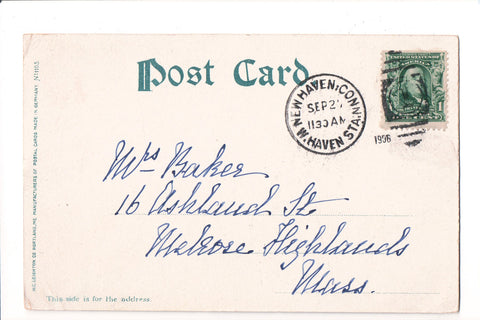 Post Card
NEW HAVEN, CONN.
SEP 2
1130 AM
W. HAVEN STA.
1906
1
Mrs Baker
16 Ashland St
Melrose Highlands
Mass.
This side is for the address.
H.C. LEIGHTON CO PORTLAND, ME. MANUFACTURERS OF POSTAL CARDS MADE IN GERMANY